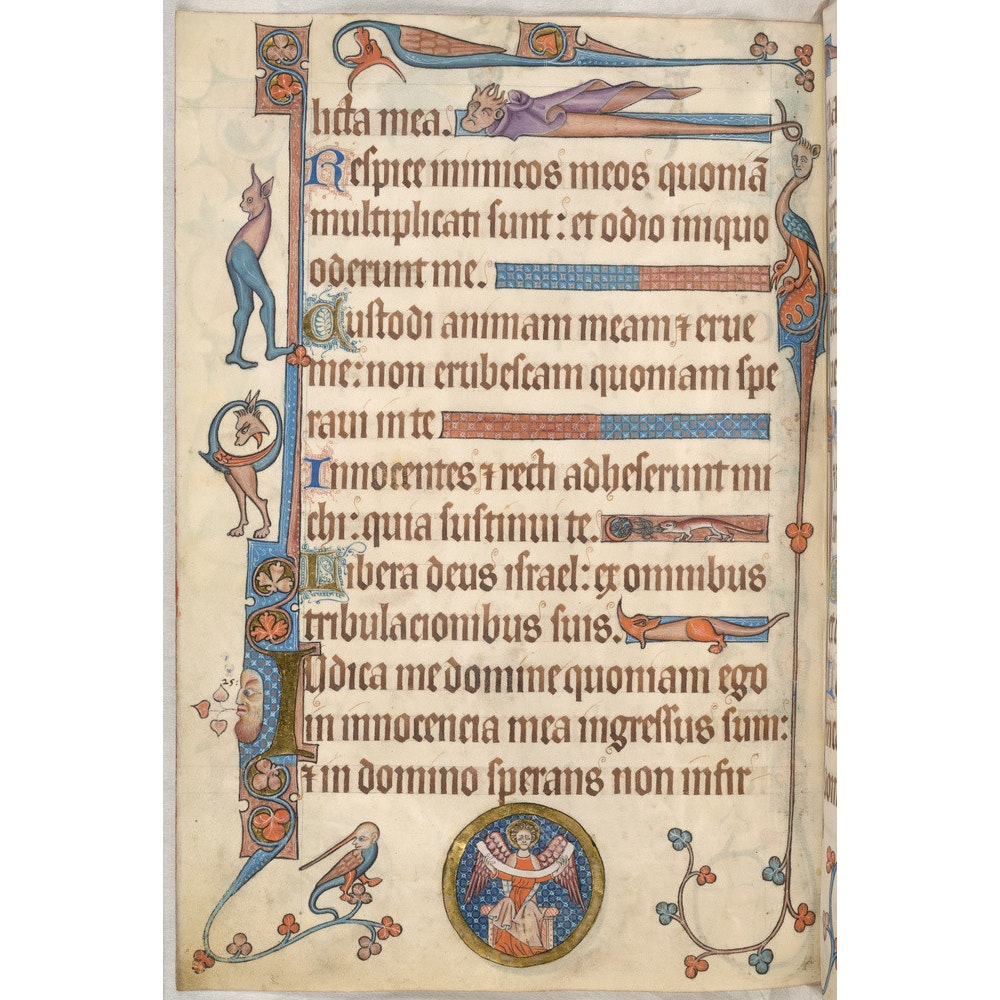 licta mea.
Respice inimicos meos quoniā
multiplicati sunt: et odio iniquo
oderunt me.
Custodi animam meam ⁊ erue
me: non erubescam quoniam spe
raui in te
Innocentes ⁊ recti adheserunt mi
chi: quia sustinui te.
Libera deus israel: ex omnibus
tribulacionibus suis.
25:
IUdica me domine quoniam ego
in innocencia mea ingressus sum:
⁊ in domino sperans non infir